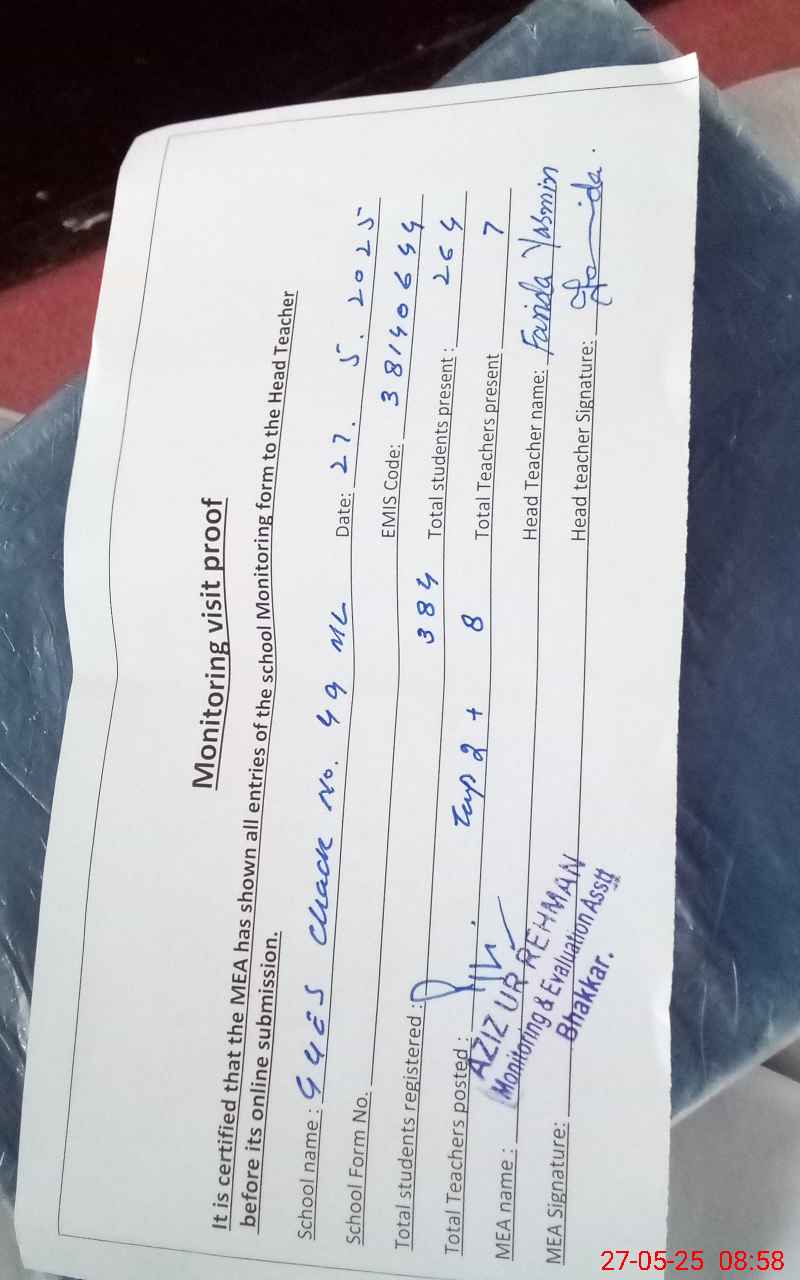 Monitoring visit proof
It is certified that the MEA has shown all entries of the school Monitoring form to the Head Teacher
before its online submission.
School name : GGES Chack No. 49 ML Date: 27. 5. 2025
School Form No. EMIS Code: 38140644
Total students registered : 384 Total students present : 264
Total Teachers posted : 2 + 8 Total Teachers present 7
MEA name : Head Teacher name: Farida Yasmin
MEA Signature: Head teacher Signature: Farida.
AZIZ UR REHMAN
Monitoring & Evaluation Asstt
Bhakkar.
27-05-25 08:58